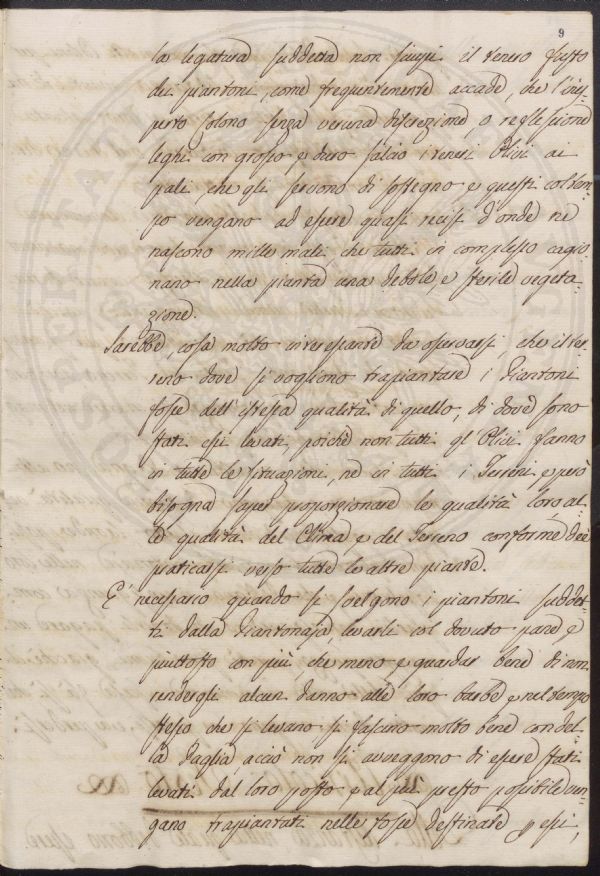 9
la legatura suddetta non stringa il tenero fusto
dei piantoni, come frequentemente accade, che l'ines-
perto Colono senza veruna discrezione, o reflessione
leghi con grosso, e duro salcio i teneri Olivi ai
pali, che gli servono di sostegno e questi col tem-
po vengano ad essere quasi recisi d'onde ne
nascono mille mali, che tutti in complesso cagio-
nano nella pianta una debole, e sterile vegeta-
zione.
Sarebbe, cosa molto interessante da osservarsi, che il ter-
reno dove si vogliono trapiantare i Piantoni
fosse dell'istessa qualità di quello, di dove sono
stati essi levati, poichè non tutti gl'Olivi fanno
in tutte le situazioni, nè in tutti i Terreni e però
bisogna saper proporzionare le qualità loro al-
le qualità del Clima, e del Terreno conforme dee
praticarsi verso tutte le altre piante.
E' necessario quando si svelgono i piantoni suddet-
ti dalla Piantonaja, levarli col dovuto pane e
piuttosto con più, che meno e guardar bene di non
rendergli alcun danno alle loro barbe e nel tempo
stesso che si levano si fascino molto bene con del-
la paglia acciò non si avveggono di essere stati
levati dal loro posto, e al più presto possibile ven-
gano trapiantati nelle fosse destinate p essi,